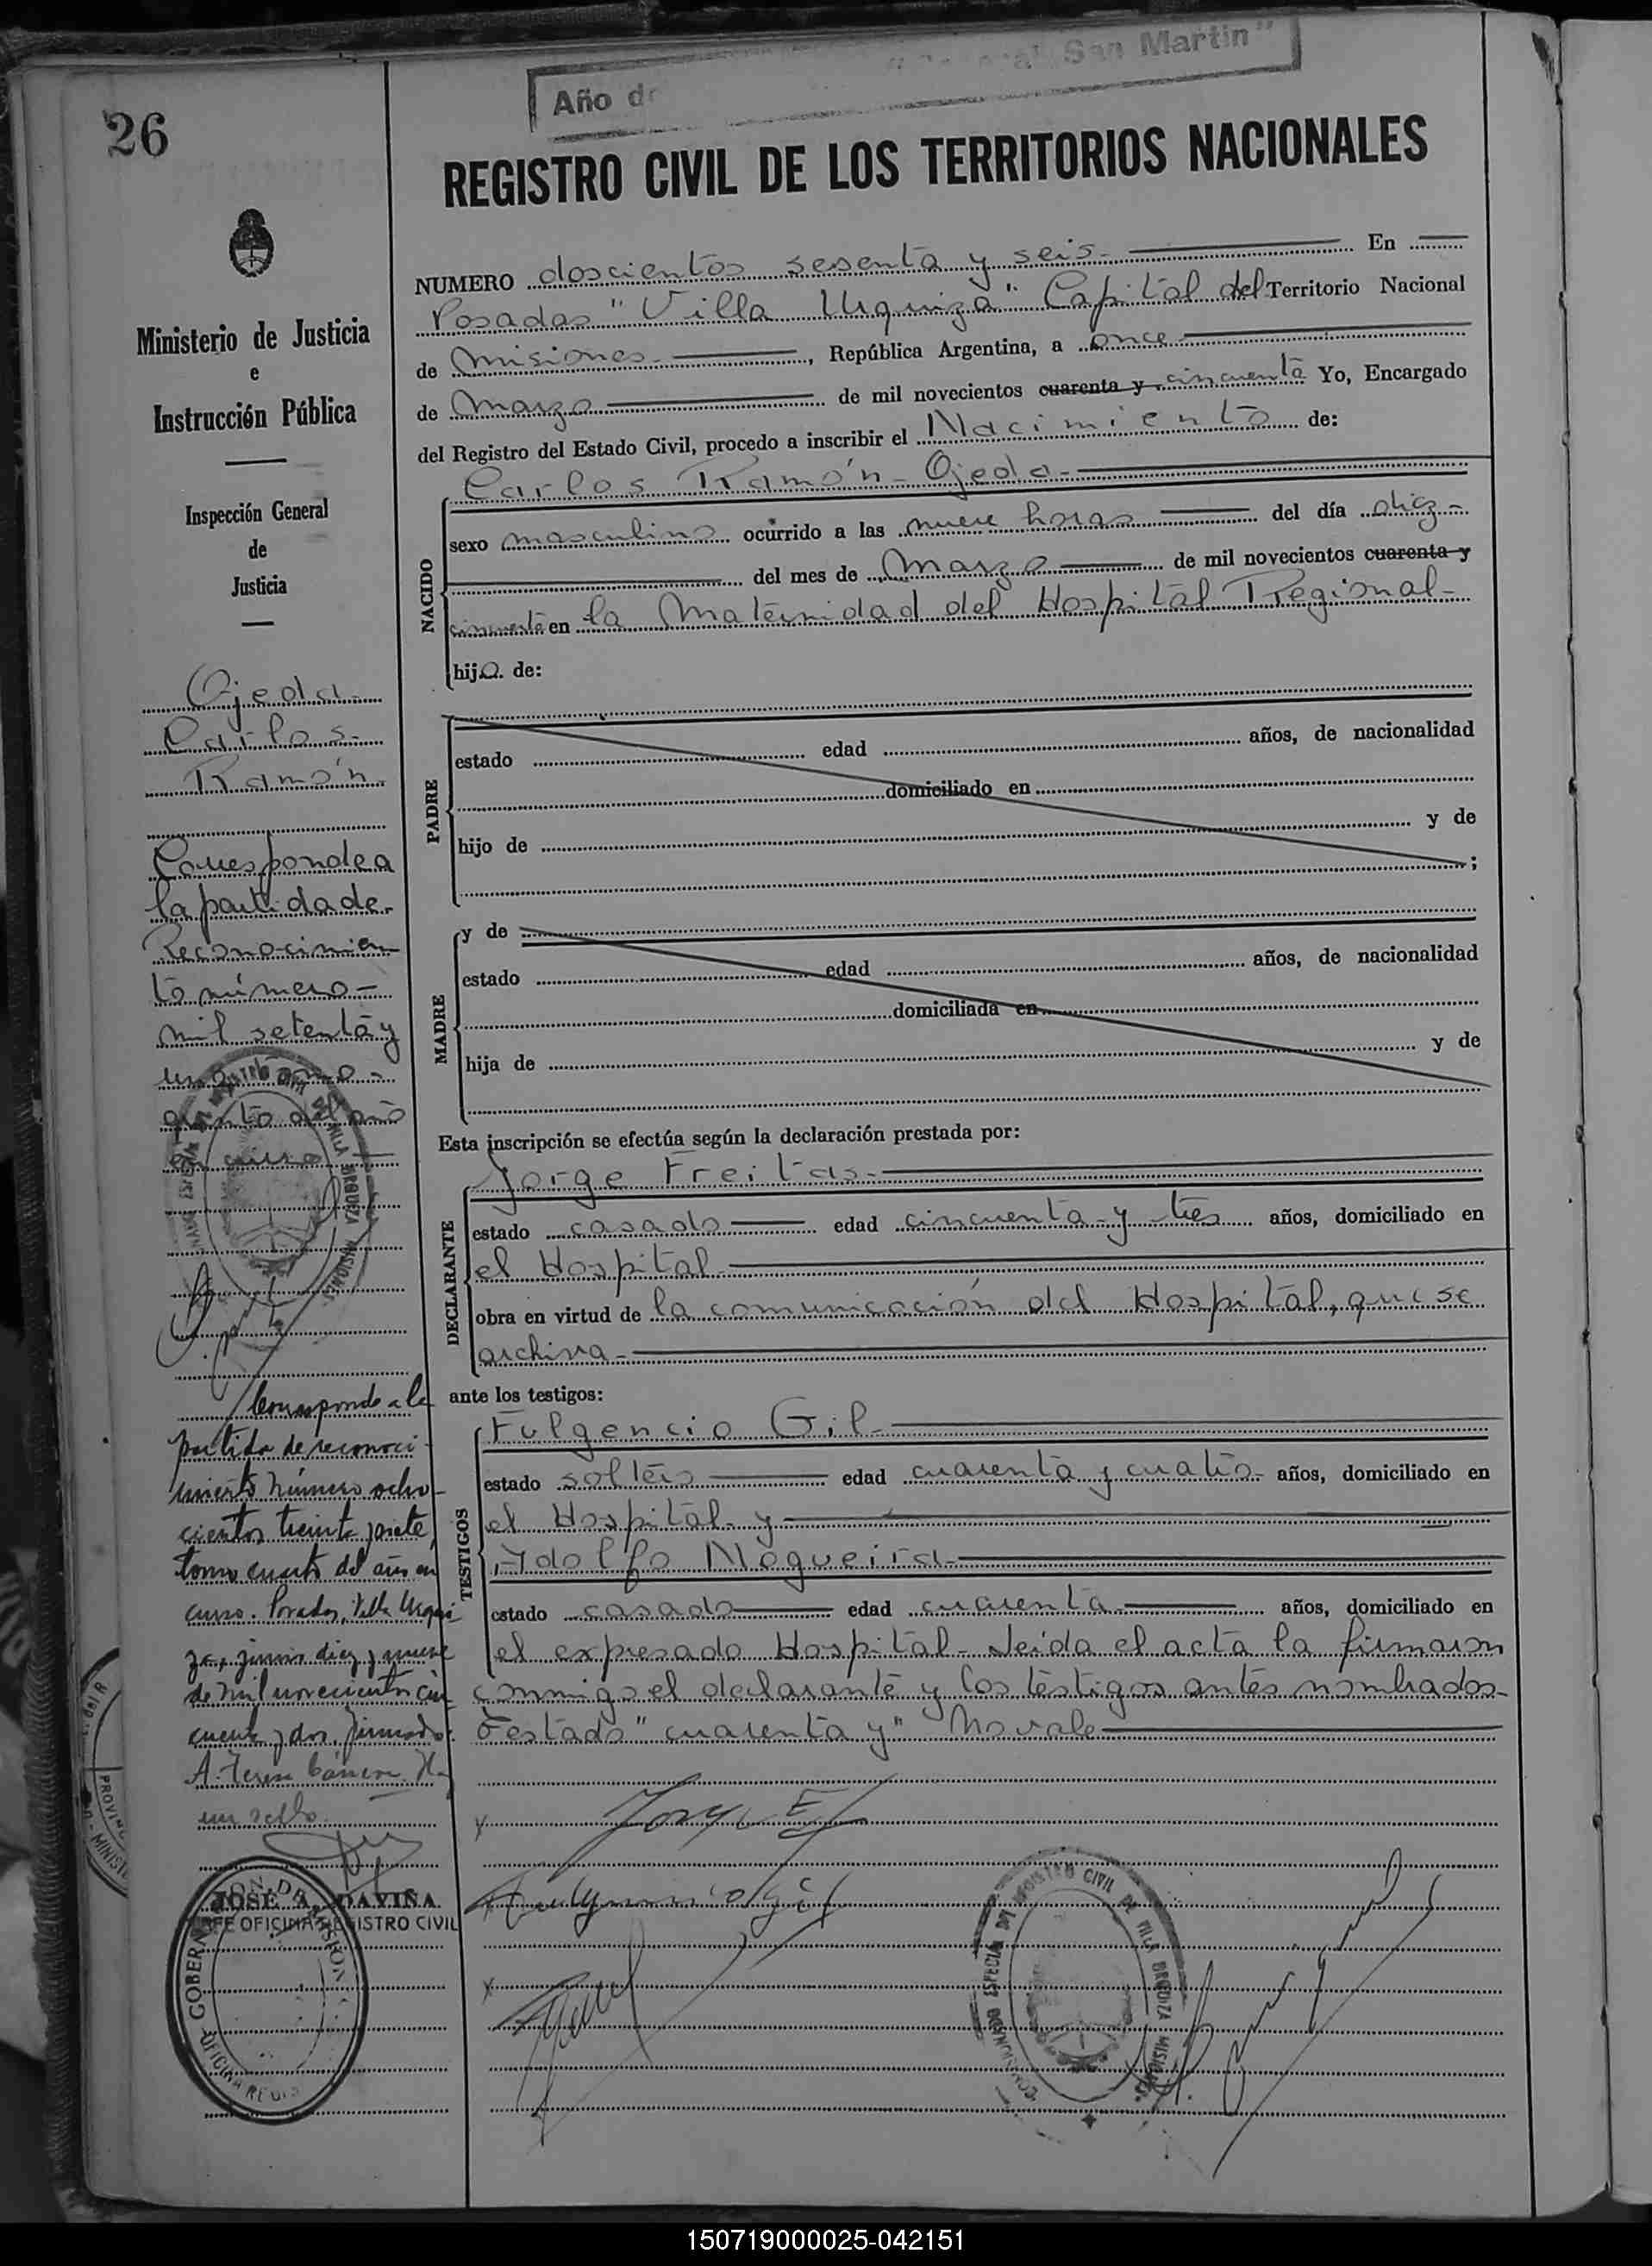 Año de "General San Martin"
26
REGISTRO CIVIL DE LOS TERRITORIOS NACIONALES
Ministerio de Justicia
e
Instrucción Pública
Inspección General
de
Justicia
Ojeda
Carlos
Ramón
Corresponde a
la partida de
Reconocimien
to número
mil setenta y
uno tomo
quinto del año
en curso
Corresponde a la
partida de reconoci-
miento número ocho-
cientos treinta y siete
tomo cuarto del año en
curso. Posadas, Villa Urqui
za, junio diez y nueve
de mil novecientos cin
cuenta y dos. firmado:
A. Teresa Hay
un sello
JOSÉ A. DAVIÑA
JEFE OFICINA REGISTRO CIVIL
NUMERO doscientos sesenta y seis En
Posadas "Villa Urquiza" Capital del Territorio Nacional
de Misiones, República Argentina, a once
de Marzo de mil novecientos cuarenta y cincuenta Yo, Encargado
del Registro del Estado Civil, procedo a inscribir el Nacimiento de:
NACIDO
Carlos Ramón Ojeda
sexo masculino ocurrido a las nueve horas del día diez
del mes de Marzo de mil novecientos cuarenta y
cincuenta en la Maternidad del Hospital Regional
hijo de:
PADRE
estado edad años, de nacionalidad
domiciliado en
hijo de y de
;
MADRE
y de
estado edad años, de nacionalidad
domiciliada en
hija de y de
Esta inscripción se efectúa según la declaración prestada por:
DECLARANTE
Jorge Freitas
estado casado edad cincuenta y tres años, domiciliado en
el Hospital
obra en virtud de la comunicación del Hospital, que se
archiva
ante los testigos:
TESTIGOS
Fulgencio Gil
estado soltero edad cuarenta y cuatro años, domiciliado en
el Hospital y
Adolfo Nogueira
estado casado edad cuarenta años, domiciliado en
el expresado Hospital- Leída el acta la firmaron
conmigo el declarante y los testigos antes nombrados-
Testado "cuarenta y" No vale
Fulgencio Gil
150719000025-042151